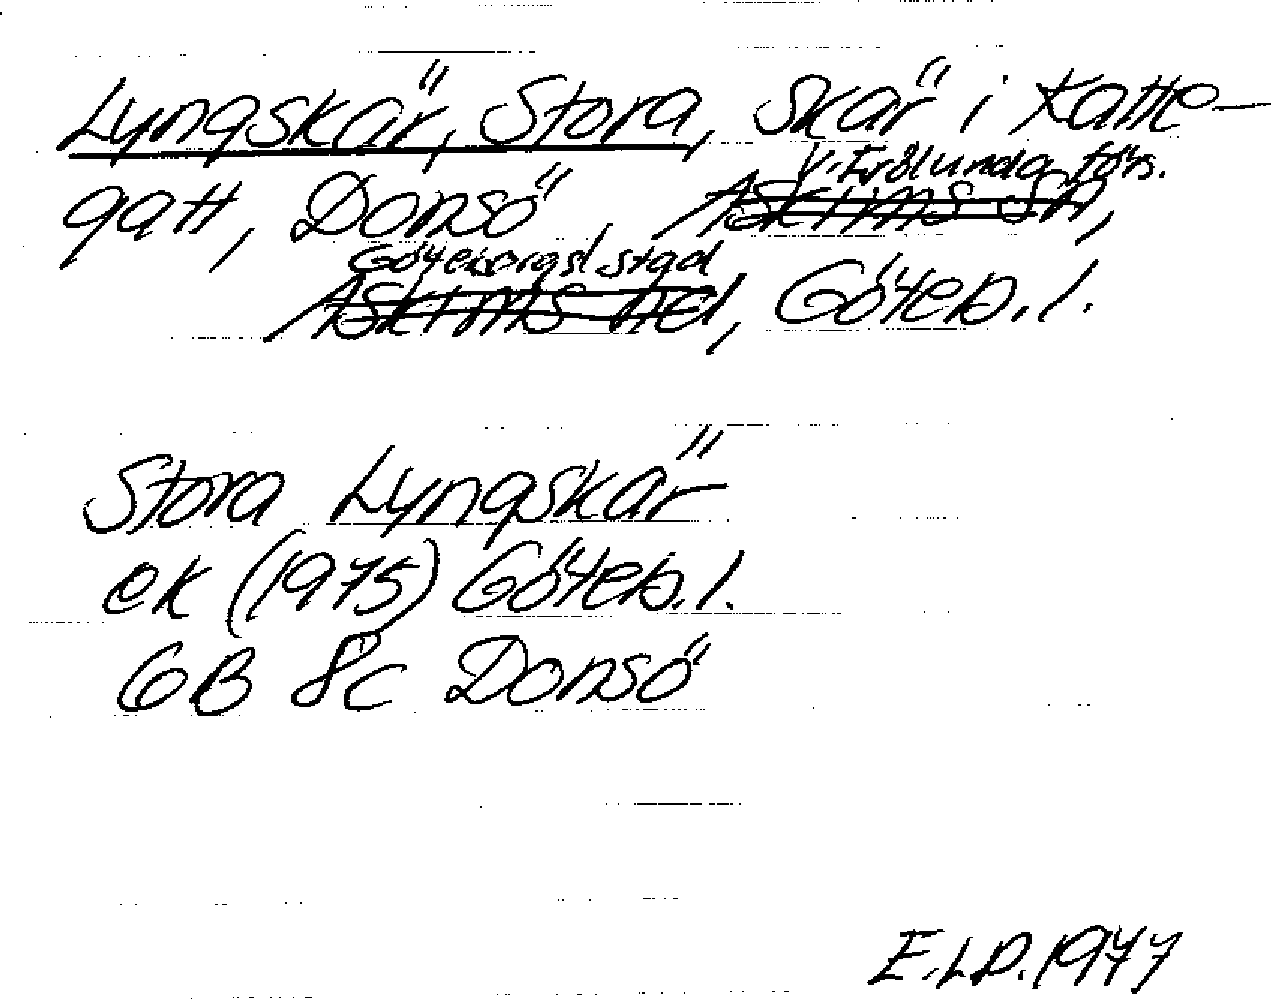 Lyngskär, Stora, Skär i Katte-
V. Frölunda förs.
gatt, Donsö, Askims sn,
Göteborgs stad
Askims hd, Göteb. l.
Stora Lyngskär
ek (1975) Göteb. l.
6B 8c Donsö
E.L.D. 1977